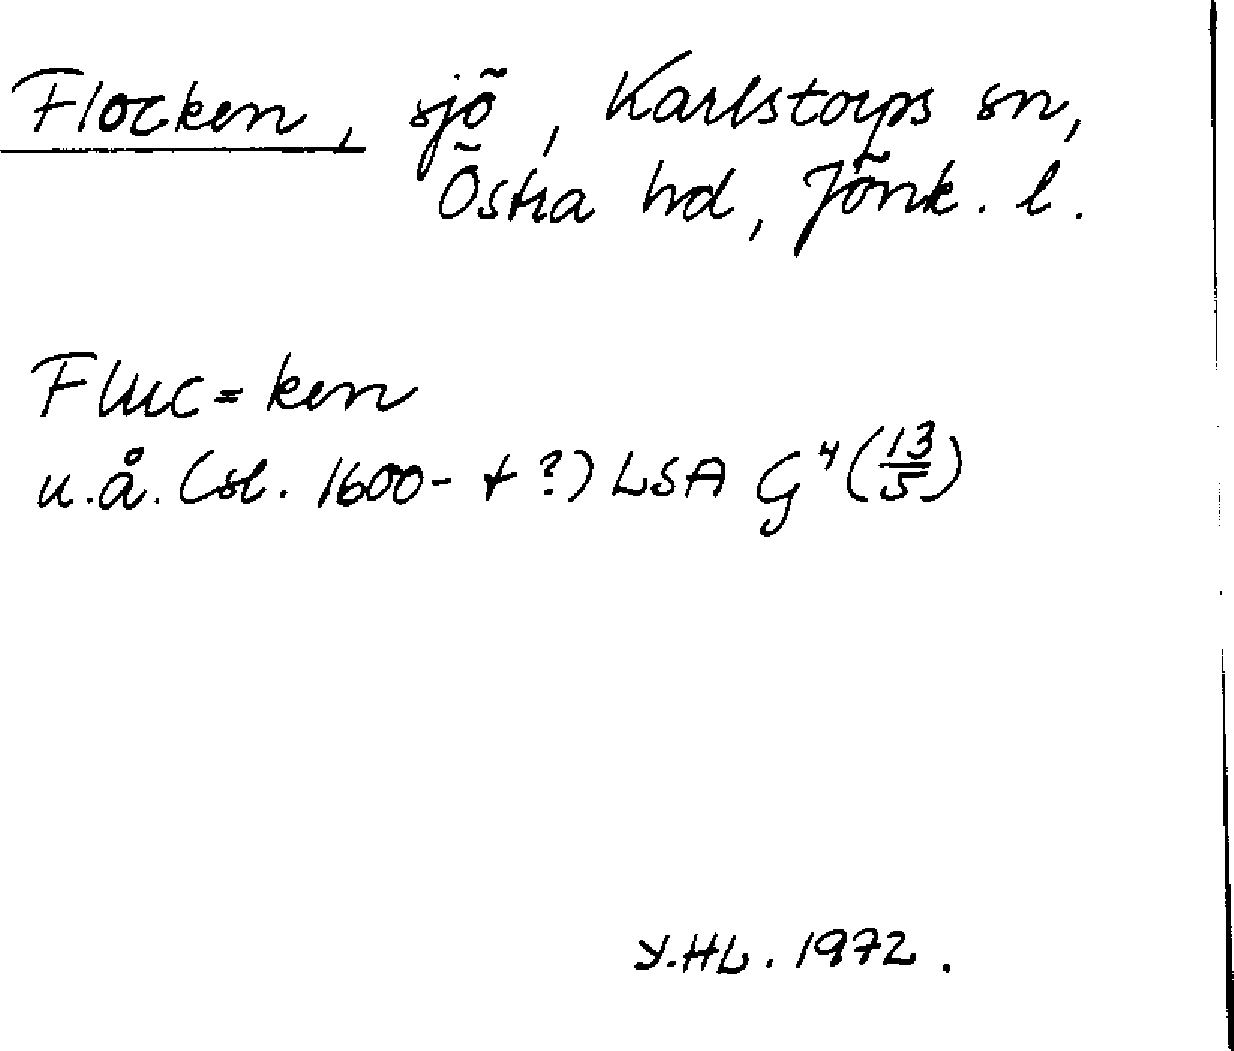 Flocken, sjö, Karlstorps sn,
Östra hd, Jönk. l.
Fluc=ken
u.å. (sl. 1600- t ?) LSA G⁴(13/5)
Y.HL. 1972.